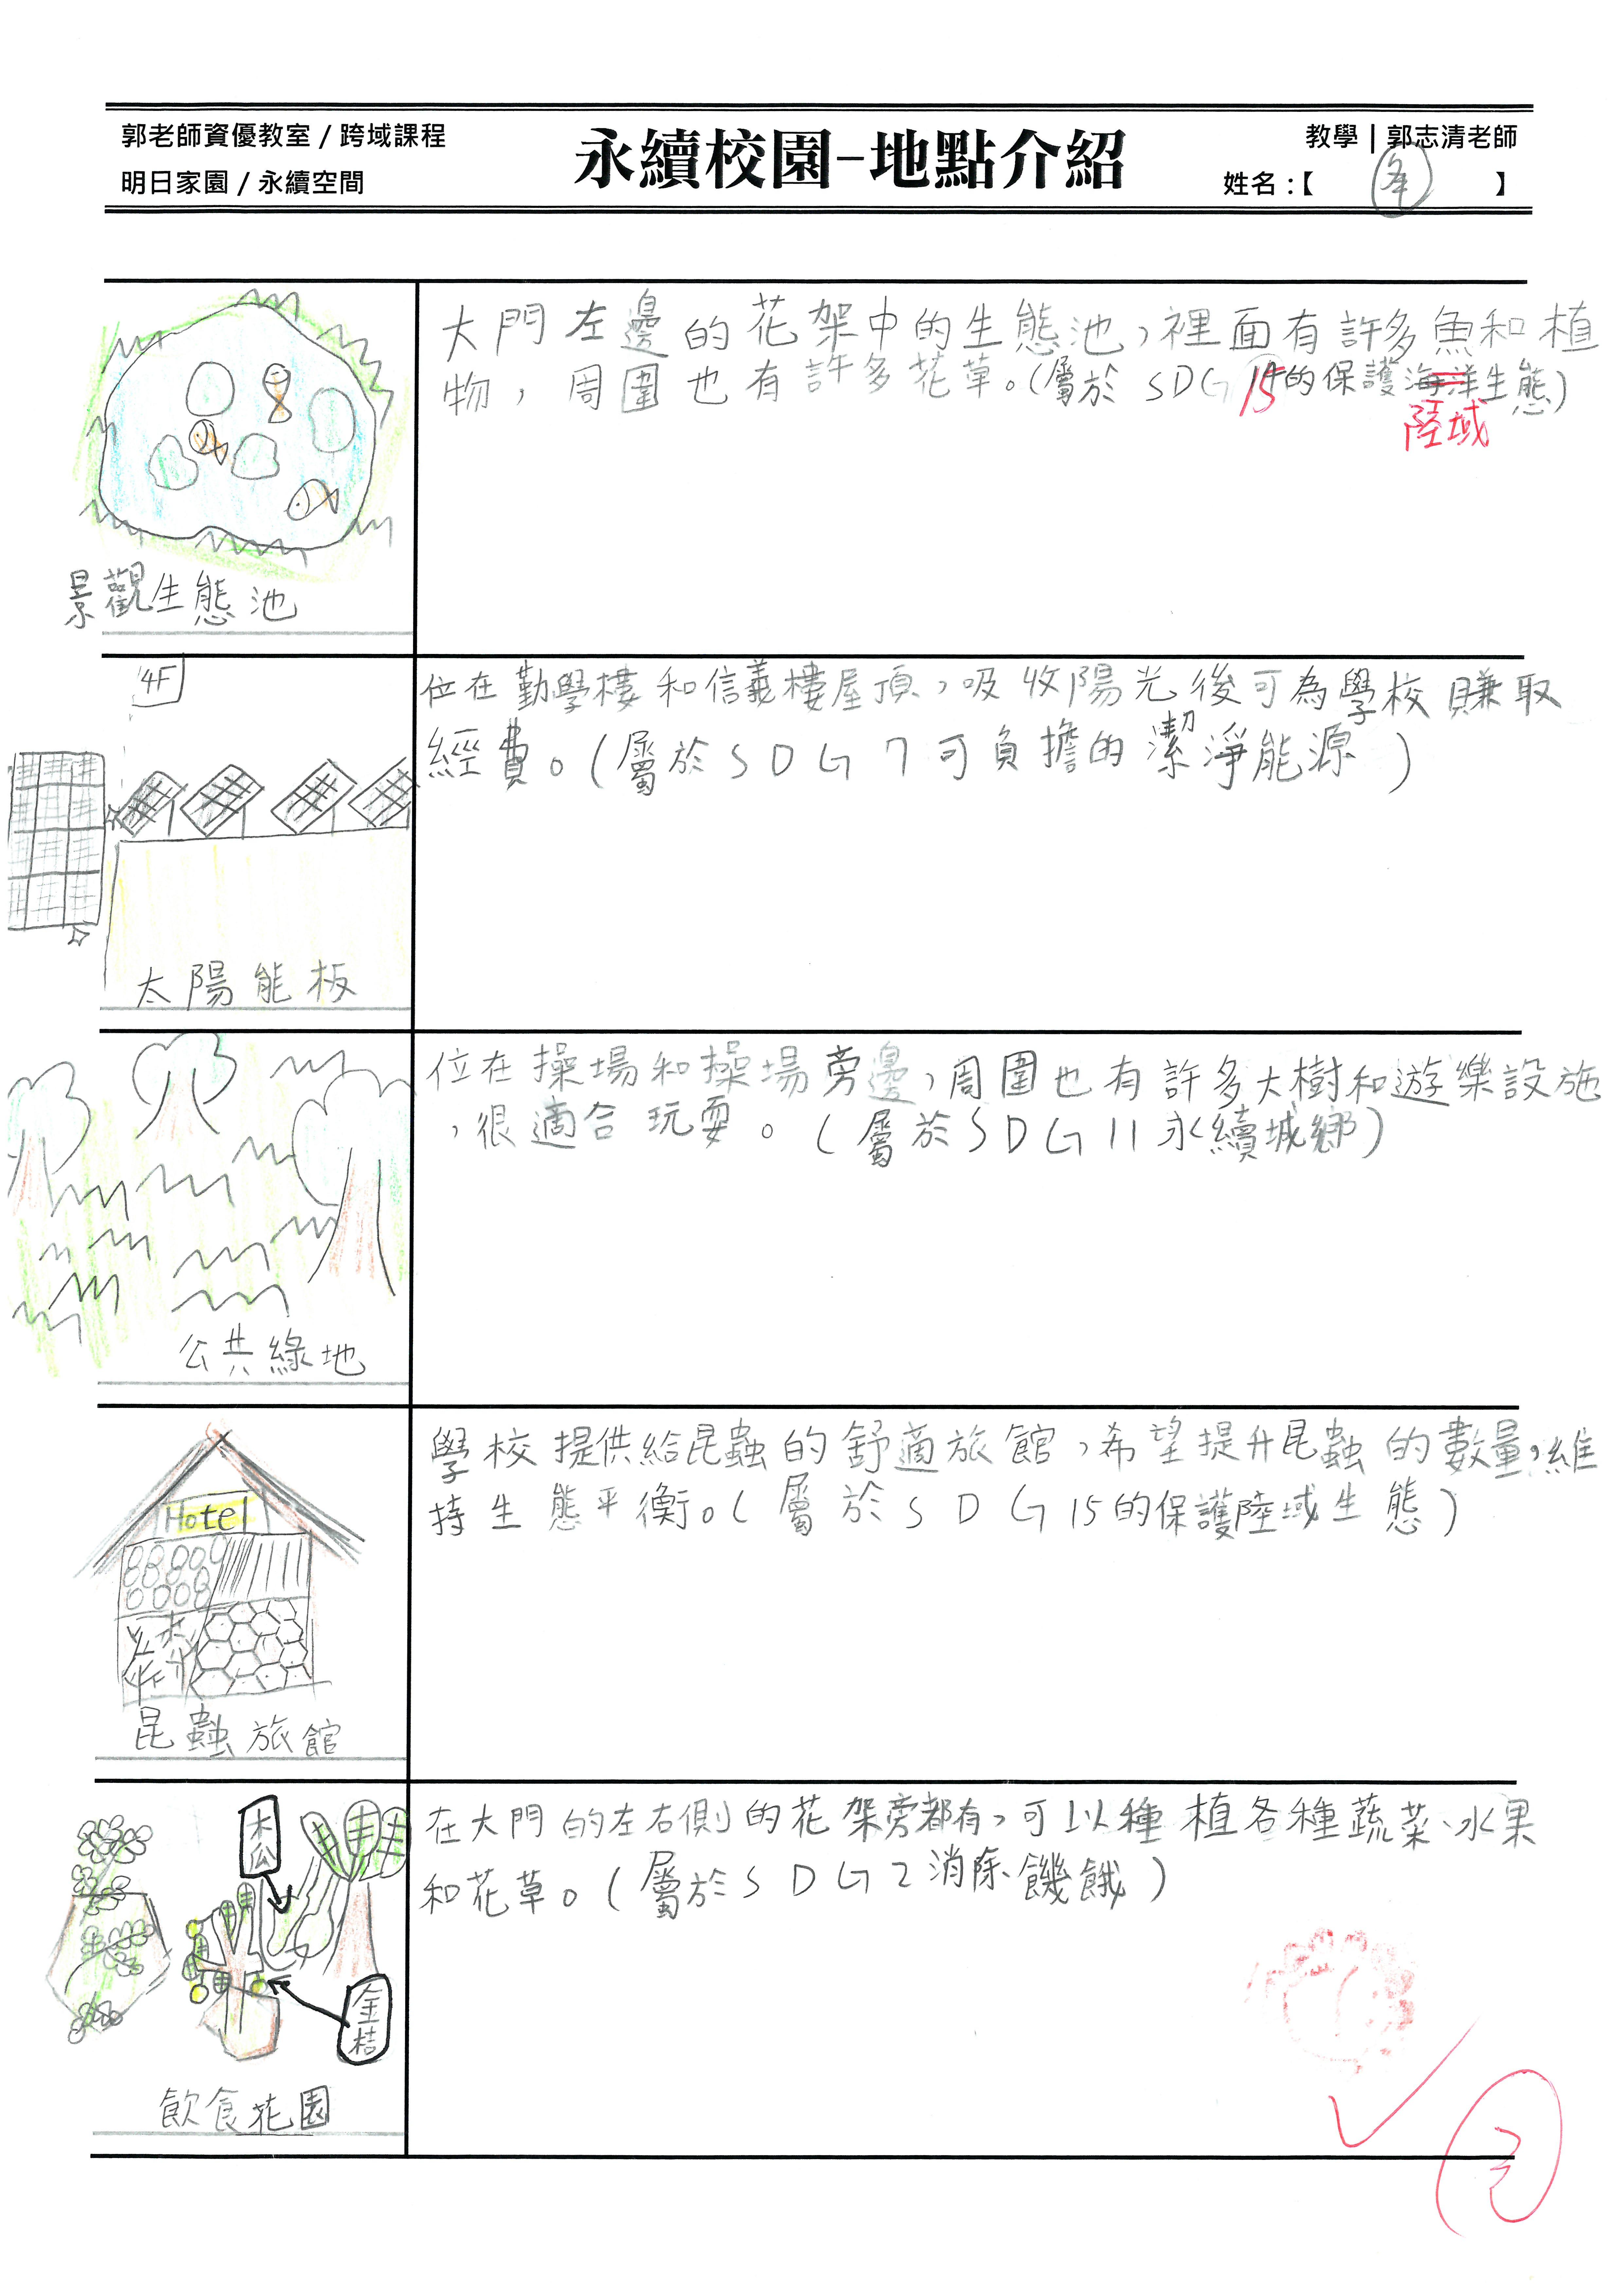 郭老師資優教室 / 跨域課程
明日家園 / 永續空間
永續校園-地點介紹
教學｜郭志清老師
姓名：【 】
大門左邊的花架中的生態池，裡面有許多魚和植
物，周圍也有許多花草。（屬於 SDG 15的保護海洋生態）
陸域
景觀生態池
4F
位在勤學樓和信義樓屋頂，吸收陽光後可為學校賺取
經費。（屬於SDG7可負擔的潔淨能源）
太陽能板
位在操場和操場旁邊，周圍也有許多大樹和遊樂設施
，很適合玩耍。（屬於SDG11永續城鄉）
公共綠地
學校提供給昆蟲的舒適旅館，希望提升昆蟲的數量，維
持生態平衡。（屬於SDG15的保護陸域生態）
Hotel
昆蟲旅館
在大門的左右側的花架旁都有，可以種植各種蔬菜、水果
和花草。（屬於SDG2消除饑餓）
木瓜
金桔
飲食花園